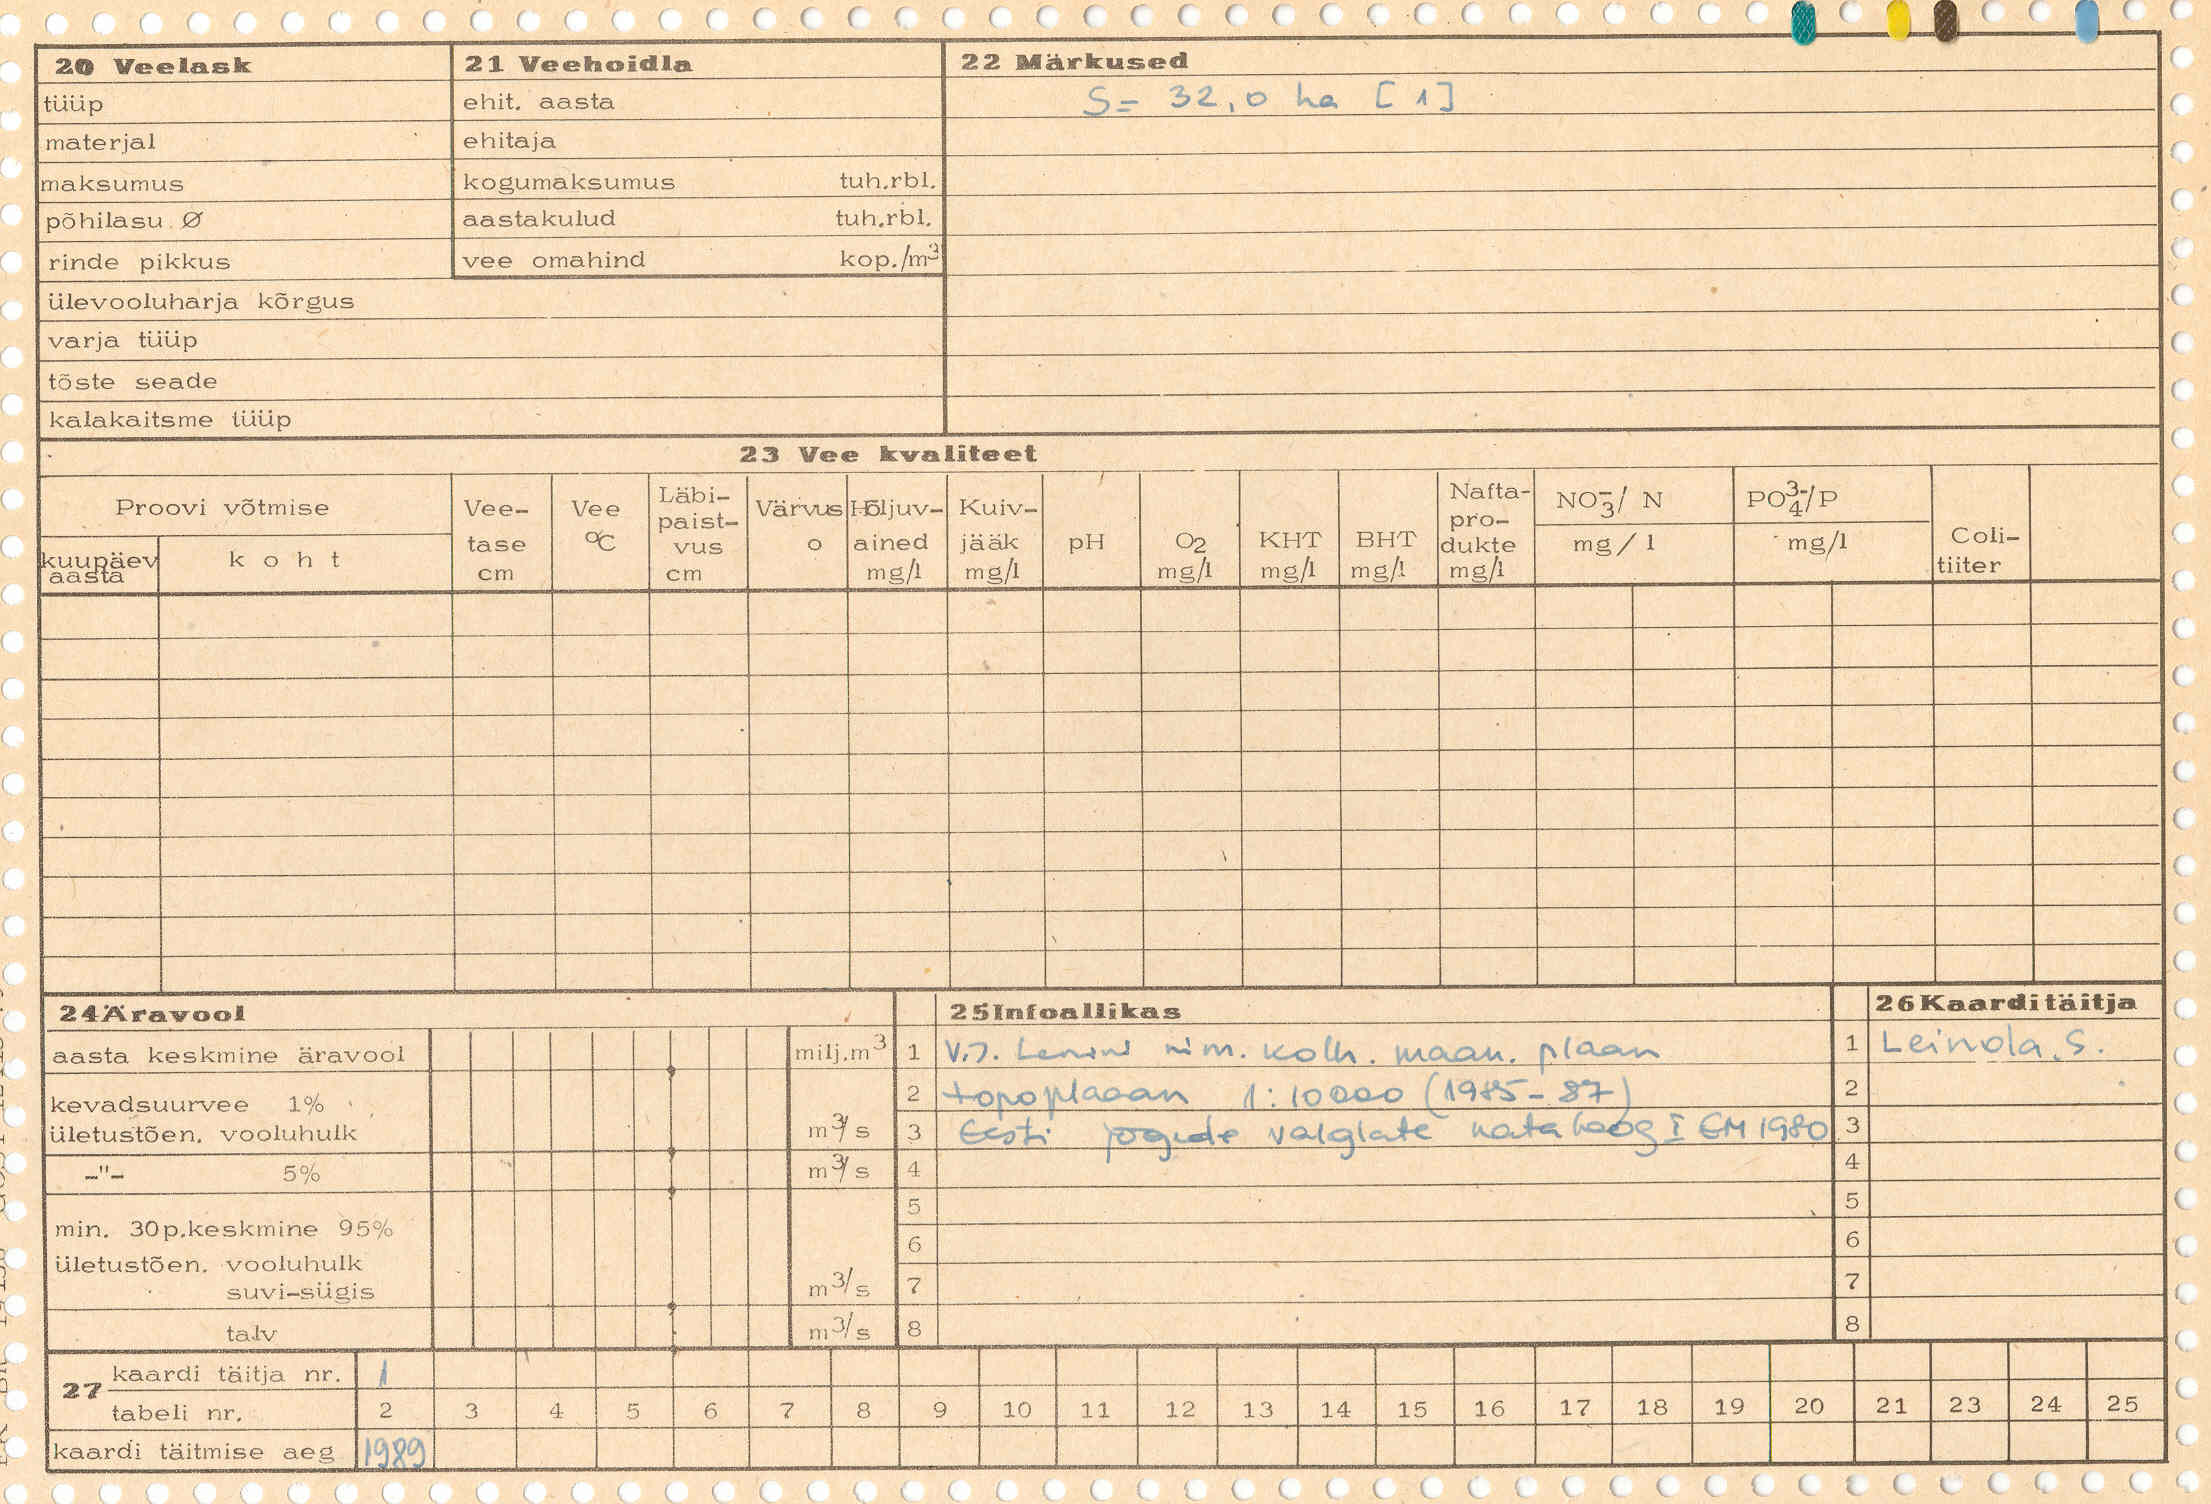 20 Veelask
tüüp
materjal
maksumus
põhilasu Ø
rinde pikkus
ülevooluharja kõrgus
varja tüüp
tõste seade
kalakaitsme tüüp
21 Veehoidla
ehit. aasta
ehitaja
kogumaksumus tuh.rbl.
aastakulud tuh.rbl.
vee omahind kop./m³
22 Märkused
S= 32,0 ha [1]
23 Vee kvaliteet
Proovi võtmise
kuupäev aasta
koht
Vee-
tase
cm
Vee
°C
Läbi-
paist-
vus
cm
Värvus
o
Hõljuv-
ained
mg/l
Kuiv-
jääk
mg/l
pH
O2
mg/l
KHT
mg/l
BHT
mg/l
Nafta-
pro-
dukte
mg/l
NO₃⁻/ N
mg/l
PO₄³⁻/P
mg/l
Coli-
tiiter
24 Äravool
aasta keskmine äravool milj.m³
kevadsuurvee 1%
ületustõen. vooluhulk m³/s
-"- 5% m³/s
min. 30p.keskmine 95%
ületustõen. vooluhulk
suvi-sügis m³/s
talv m³/s
25 Infoallikas
1 V.I. Lenini nim. kolh. maan. plaan
2 topoplaaan 1:10000 (1985-87)
3 Eesti jõgede valglate kataloog I EM 1980
4
5
6
7
8
26 Kaarditäitja
1 Leinola, S.
2
3
4
5
6
7
8
27
kaardi täitja nr. 1
tabeli nr. 2 3 4 5 6 7 8 9 10 11 12 13 14 15 16 17 18 19 20 21 23 24 25
kaardi täitmise aeg 1989